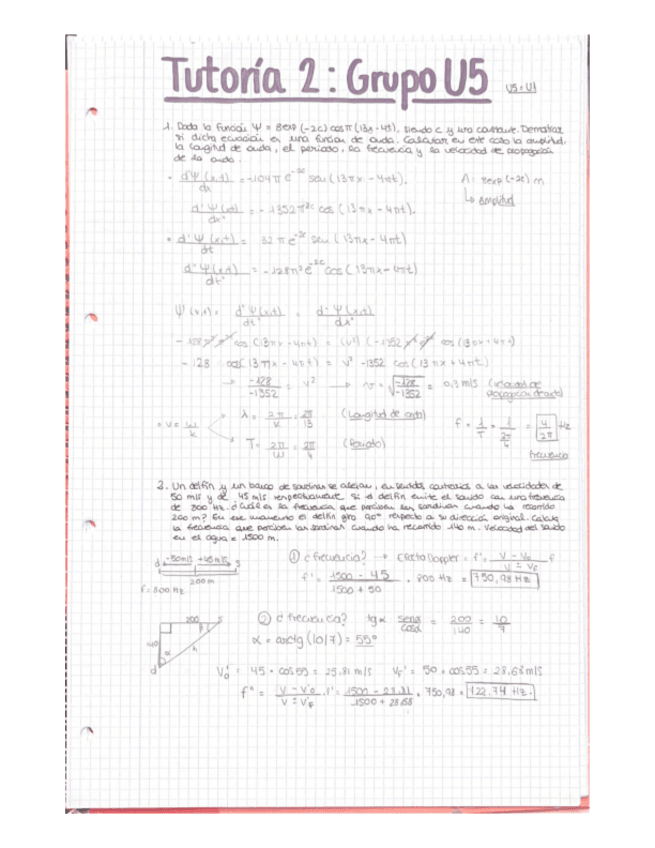 Tutoría 2: Grupo U5
U5=U1
1. Dada la función Ψ = 8exp(-2c) cosπ(13x-4t), siendo c y una constante. Demostrar
si dicha ecuación es una función de onda. Calcular en este caso la amplitud,
la longitud de onda, el periodo, la frecuencia y la velocidad de propagación
de la onda.
• dΨ(x,t)/dx = -104π e^-2c sen(13πx - 4πt).
A: 8exp(-2c) m
↳ amplitud
d²Ψ(x,t)/dx² = -1352π²e^-2c cos(13πx - 4πt).
• dΨ(x,t)/dt = 32πe^-2c sen(13πx - 4πt)
d²Ψ(x,t)/dt² = -128π²e^-2c cos(13πx - 4πt)
Ψ(x,t) = d²Ψ(x,t)/dt² = d²Ψ(x,t)/dx²
cos(13πx - 4πt) = (v²)(-1352 cos(13πx + 4πt)
- 128 cos(13πx - 4πt) = v² -1352 cos(13πx + 4πt)
→ -128/-1352 = v² → v = √-128/-1352 = 0,3 m/s (velocidad de
propagación de onda)
= v = w/k
λ = 2π/k = 2π/13 (Longitud de onda)
T = 2π/w = 2π/4 (Periodo)
f = 1/T = 1/2π/4 = 4/2π Hz
frecuencia
Un delfín y un banco de sardinas se alejan, en sentidos contrarios a las velocidades de
50 m/s y de 45 m/s respectivamente. Si el delfín emite el sonido con una frecuencia
de 800 Hz. ¿Cuál es la frecuencia que perciben las sardinas cuando ha recorrido
200 m? En ese momento el delfín giro 90° respecto a su dirección original. Calcula
la frecuencia que perciben las sardinas cuando ha recorrido 140 m. Velocidad del sonido
en el agua = 1500 m.
d -50m/s +45m/s S
200 m
f = 800 Hz
① ¿frecuencia? → Efecto Doppler = f' = V - Vo / V ± VF f
f' = 1500 - 45 / 1500 + 50 · 800 Hz = 750,98 Hz
200 S
140
α
h
d
② ¿frecuencia? tgα senα/cosα = 200/140 = 10/7
α = arctg(10/7) = 55°
Vo' = 45 · cos55 = 25,81 m/s VF' = 50 · cos55 = 28,68 m/s
f'' = V - Vo' / V ± VF' · f' = 1500 - 25,81 / 1500 + 28,68 · 750,98 = 722,74 Hz.